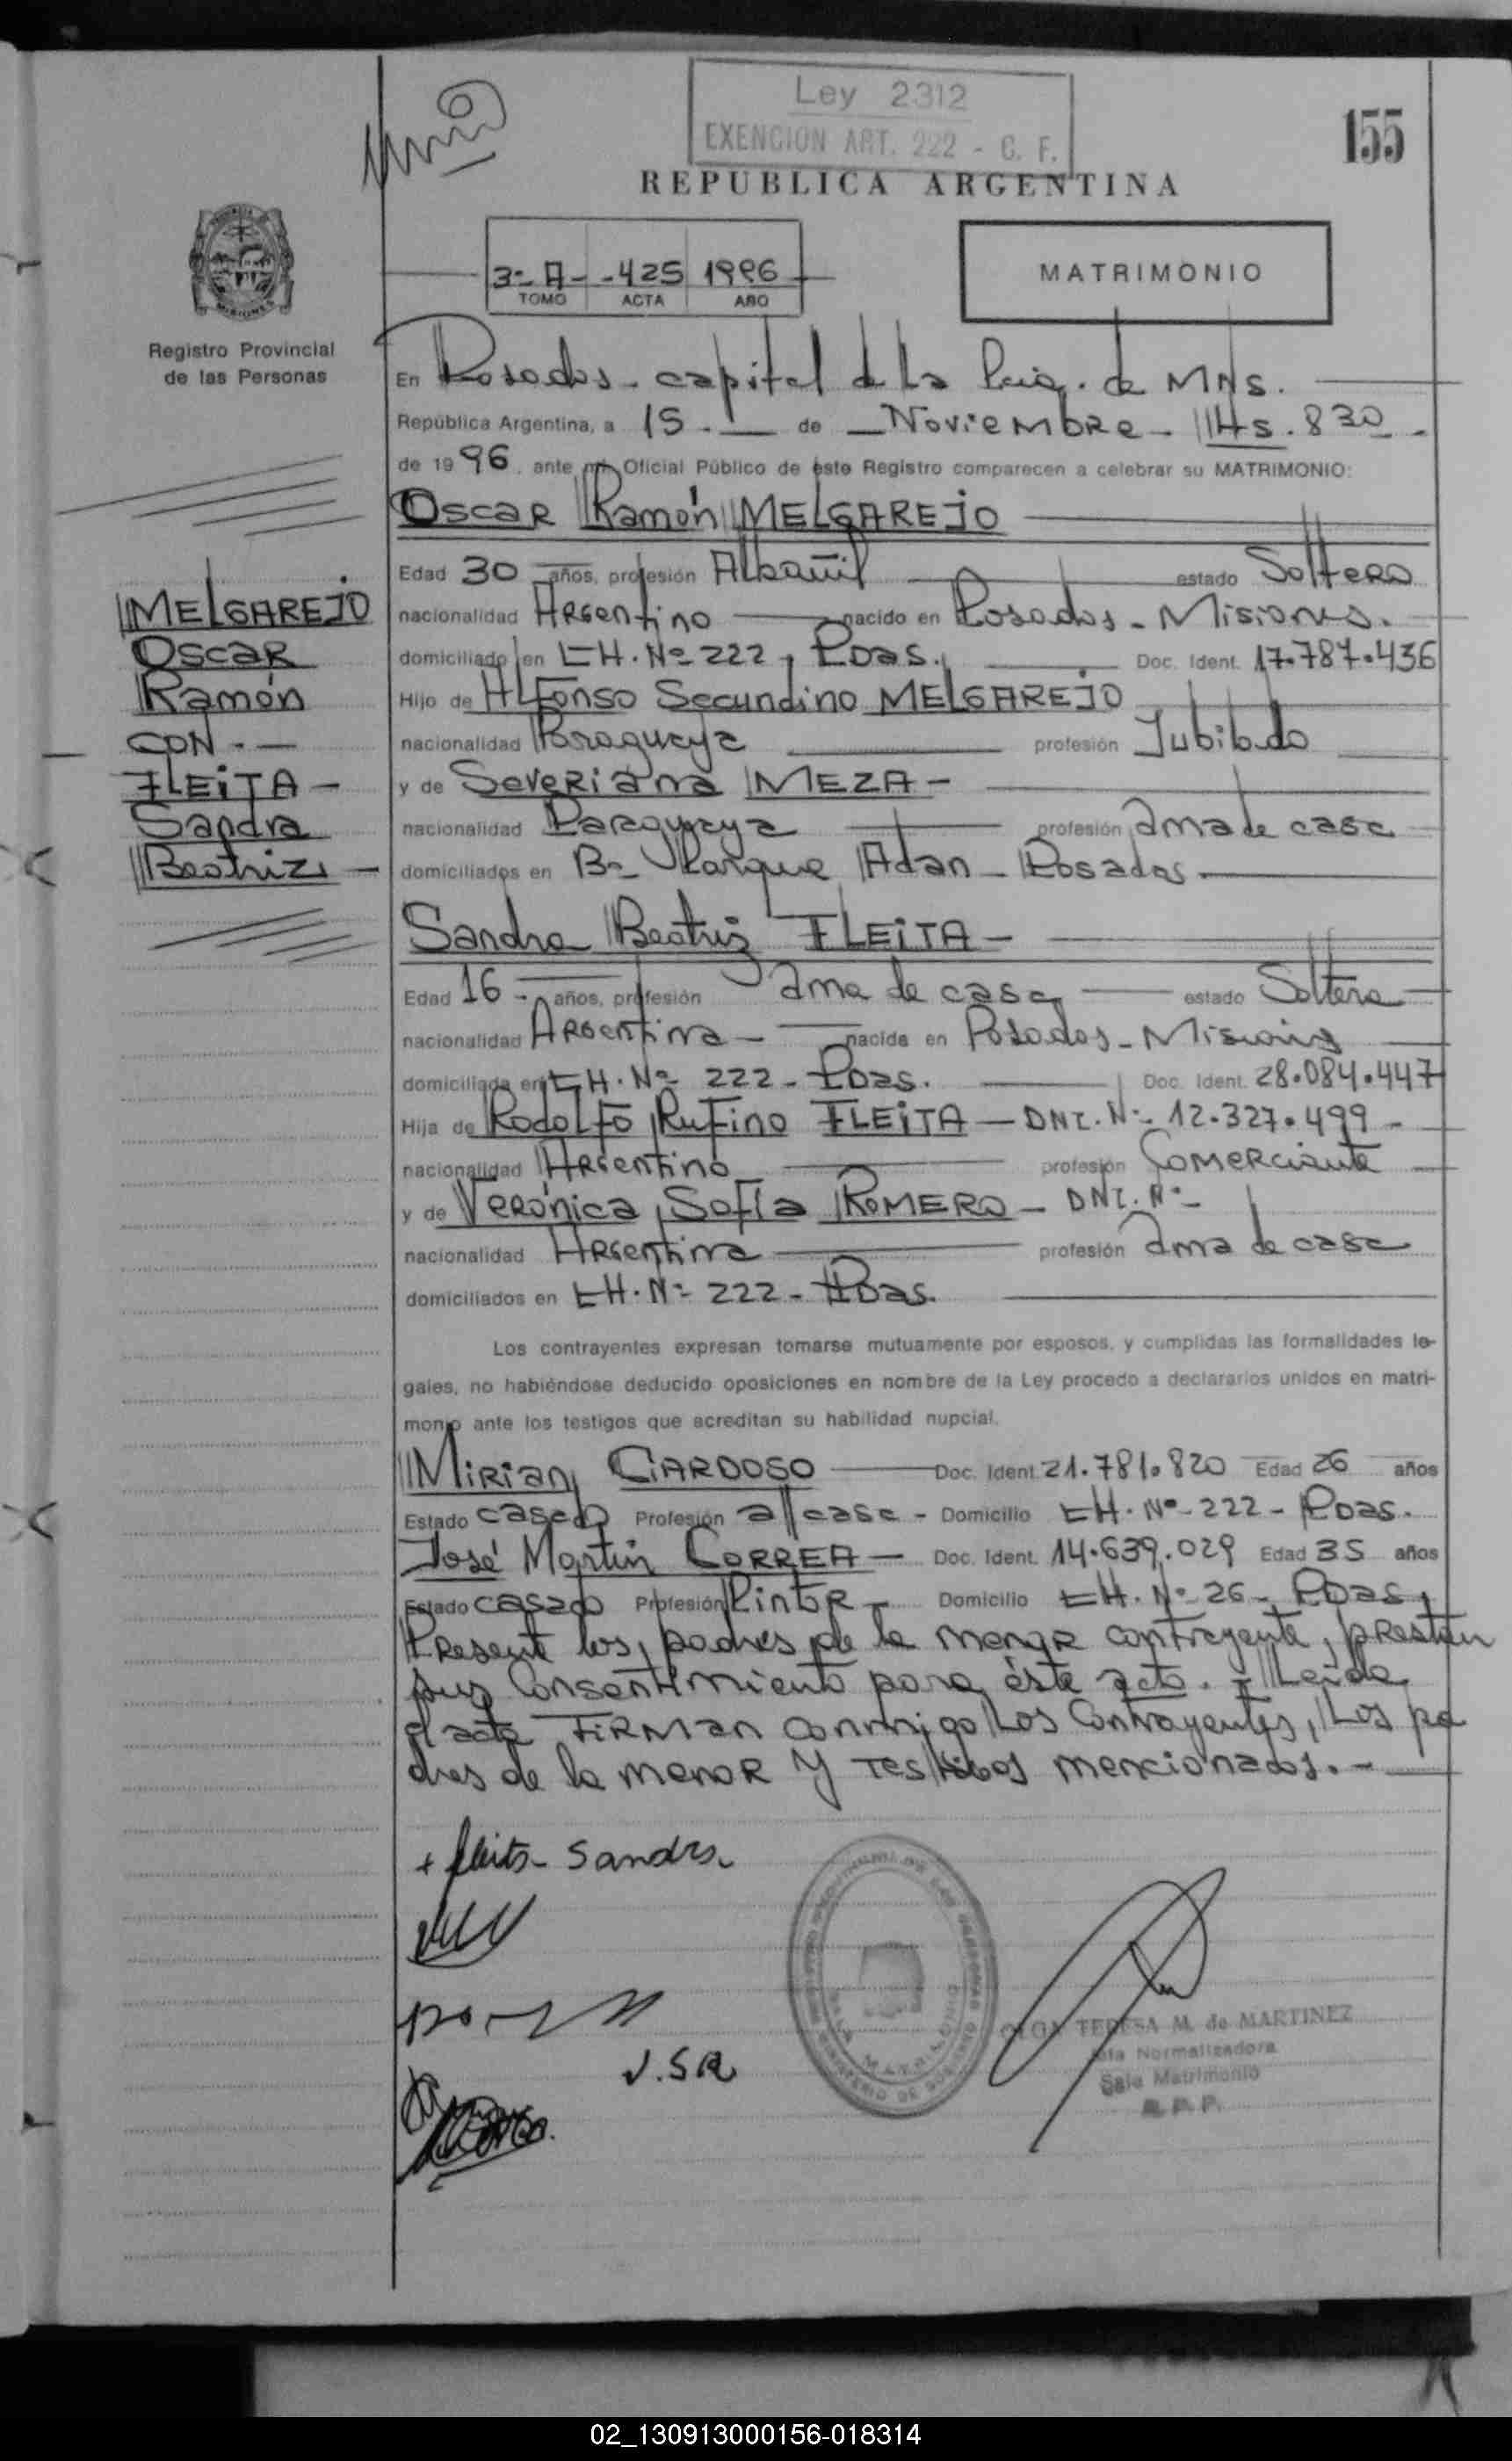 Ley 2312
EXENCION ART. 222 - C. F.
155
REPUBLICA ARGENTINA
3º A - 425 1996
TOMO ACTA AÑO
MATRIMONIO
Registro Provincial
de las Personas
En Posadas - capital de la Pcia. de MNS.
República Argentina, a 15 - de Noviembre - Hs. 830 -
de 1996, ante mí, Oficial Público de este Registro comparecen a celebrar su MATRIMONIO:
Oscar Ramón MELGAREJO
Edad 30 años, profesión Albañil estado Soltero
nacionalidad Argentino nacido en Posadas - Misiones.
domiciliado en CH. Nº 222, Pdas. Doc. Ident. 17.787.436
Hijo de Alfonso Secundino MELGAREJO
nacionalidad Paraguaya profesión Jubilado
y de Severiana MEZA -
nacionalidad Paraguaya profesión ama de casa
domiciliados en Bº Parque Adan - Posadas
MELGAREJO
Oscar
Ramón
CON. -
FLEITA -
Sandra
Beatriz -
Sandra Beatriz FLEITA -
Edad 16 - años, profesión ama de casa estado Soltera
nacionalidad Argentina - nacida en Posadas - Misiones
domiciliada en CH. Nº 222 - Pdas. Doc. Ident. 28.084.447
Hija de Rodolfo Rufino FLEITA - DNI. Nº 12.327.499 -
nacionalidad Argentino profesión Comerciante
y de Verónica Sofía ROMERO - DNI. Nº -
nacionalidad Argentina profesión ama de casa
domiciliados en CH. Nº 222 - Pdas.
Los contrayentes expresan tomarse mutuamente por esposos, y cumplidas las formalidades le-
gales, no habiéndose deducido oposiciones en nombre de la Ley procedo a declararlos unidos en matri-
monio ante los testigos que acreditan su habilidad nupcial.
Mirian CARDOSO Doc. Ident. 21.781.820 Edad 26 años
Estado casada Profesión a/casa - Domicilio CH. Nº 222 - Pdas.
José Martin CORREA - Doc. Ident. 14.639.029 Edad 35 años
Estado casado Profesión Pintor - Domicilio CH. Nº 26 - Pdas,
Present los padres de la menor contrayente, prestan
sus Consentimiento para éste acto. - Leída
el acta FIRMan conmigo Los Contrayentes, Los pa
dres de la menor y testigos mencionados. -
+ fleita - Sandra
V.S.R
OLGA TERESA M. de MARTINEZ
Jefa Normalizadora
Sala Matrimonio
R.P.P.
02_130913000156-018314